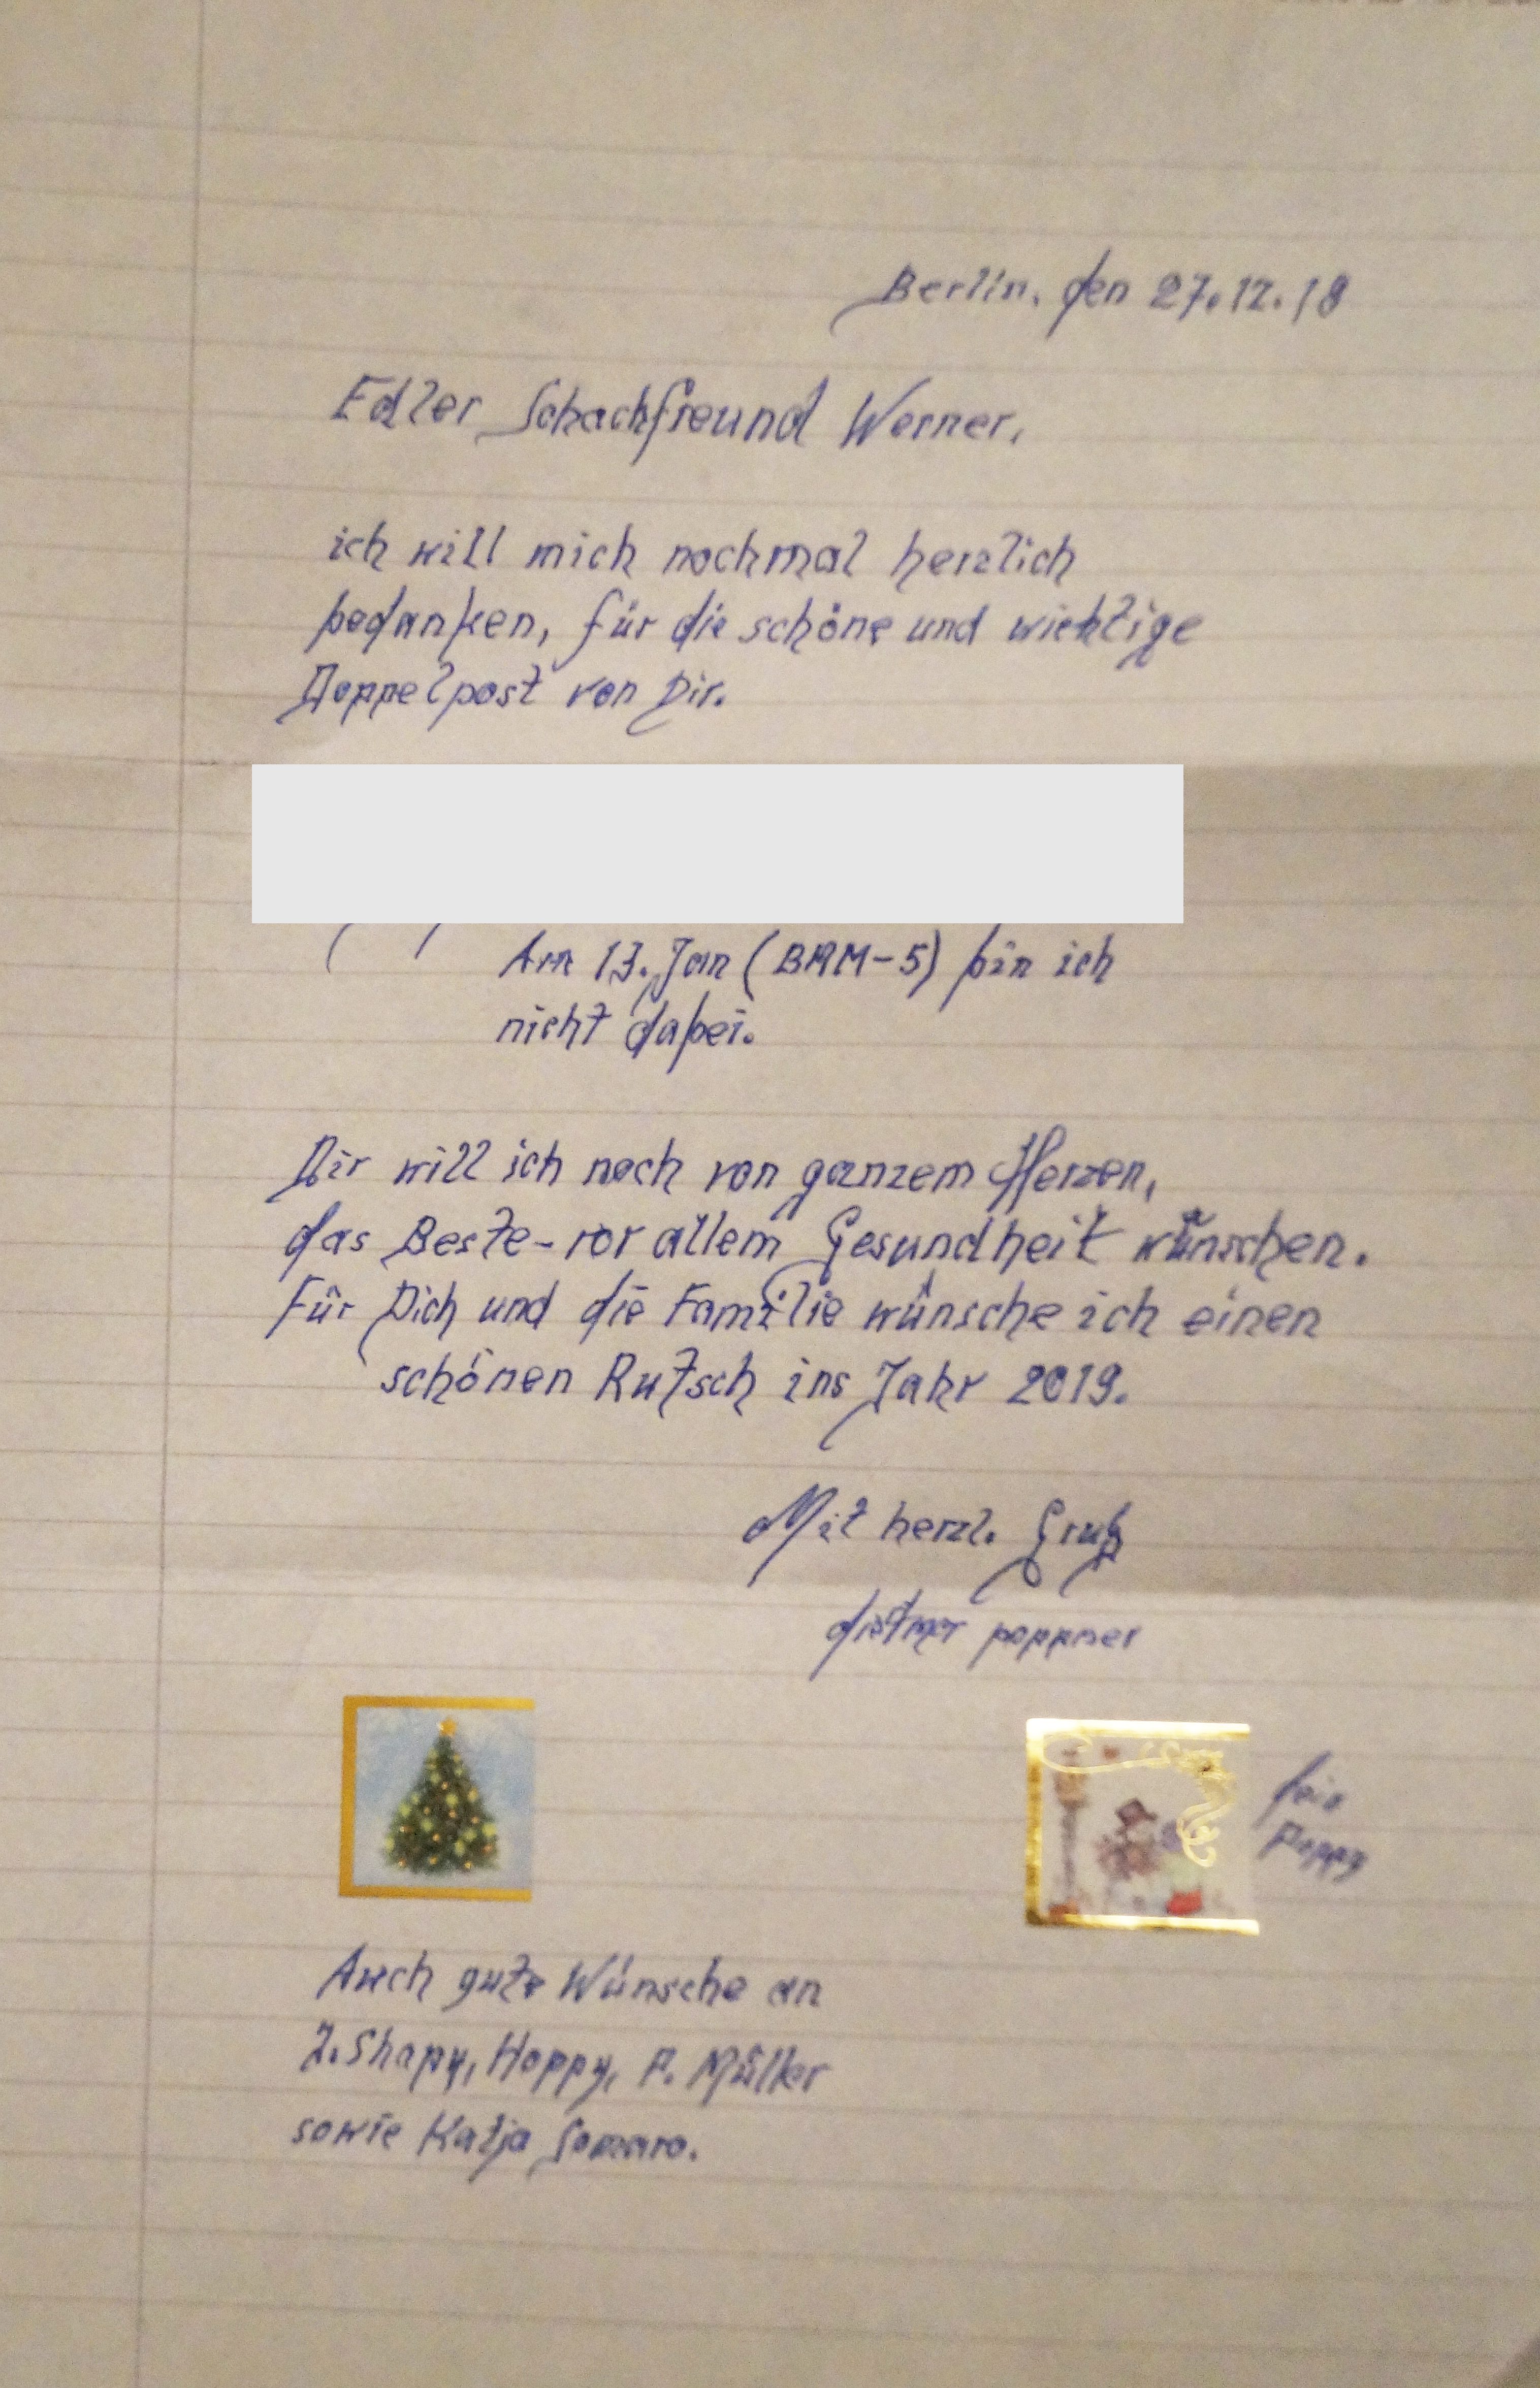 Berlin, den 27.12.18
Edler Schachfreund Werner,
ich will mich nochmal herzlich
bedanken, für die schöne und wichtige
Doppelpost von Dir.
Am 13. Jan (BMM-5) bin ich
nicht dabei.
Dir will ich noch von ganzem Herzen,
das Beste - vor allem Gesundheit wünschen.
Für Dich und die Familie wünsche ich einen
schönen Rutsch ins Jahr 2019.
Mit herzl. Gruß
dietmar poppner
Poppy
Auch gute Wünsche an
J. Shapy, Hoppy, P. Müller
sowie Katja